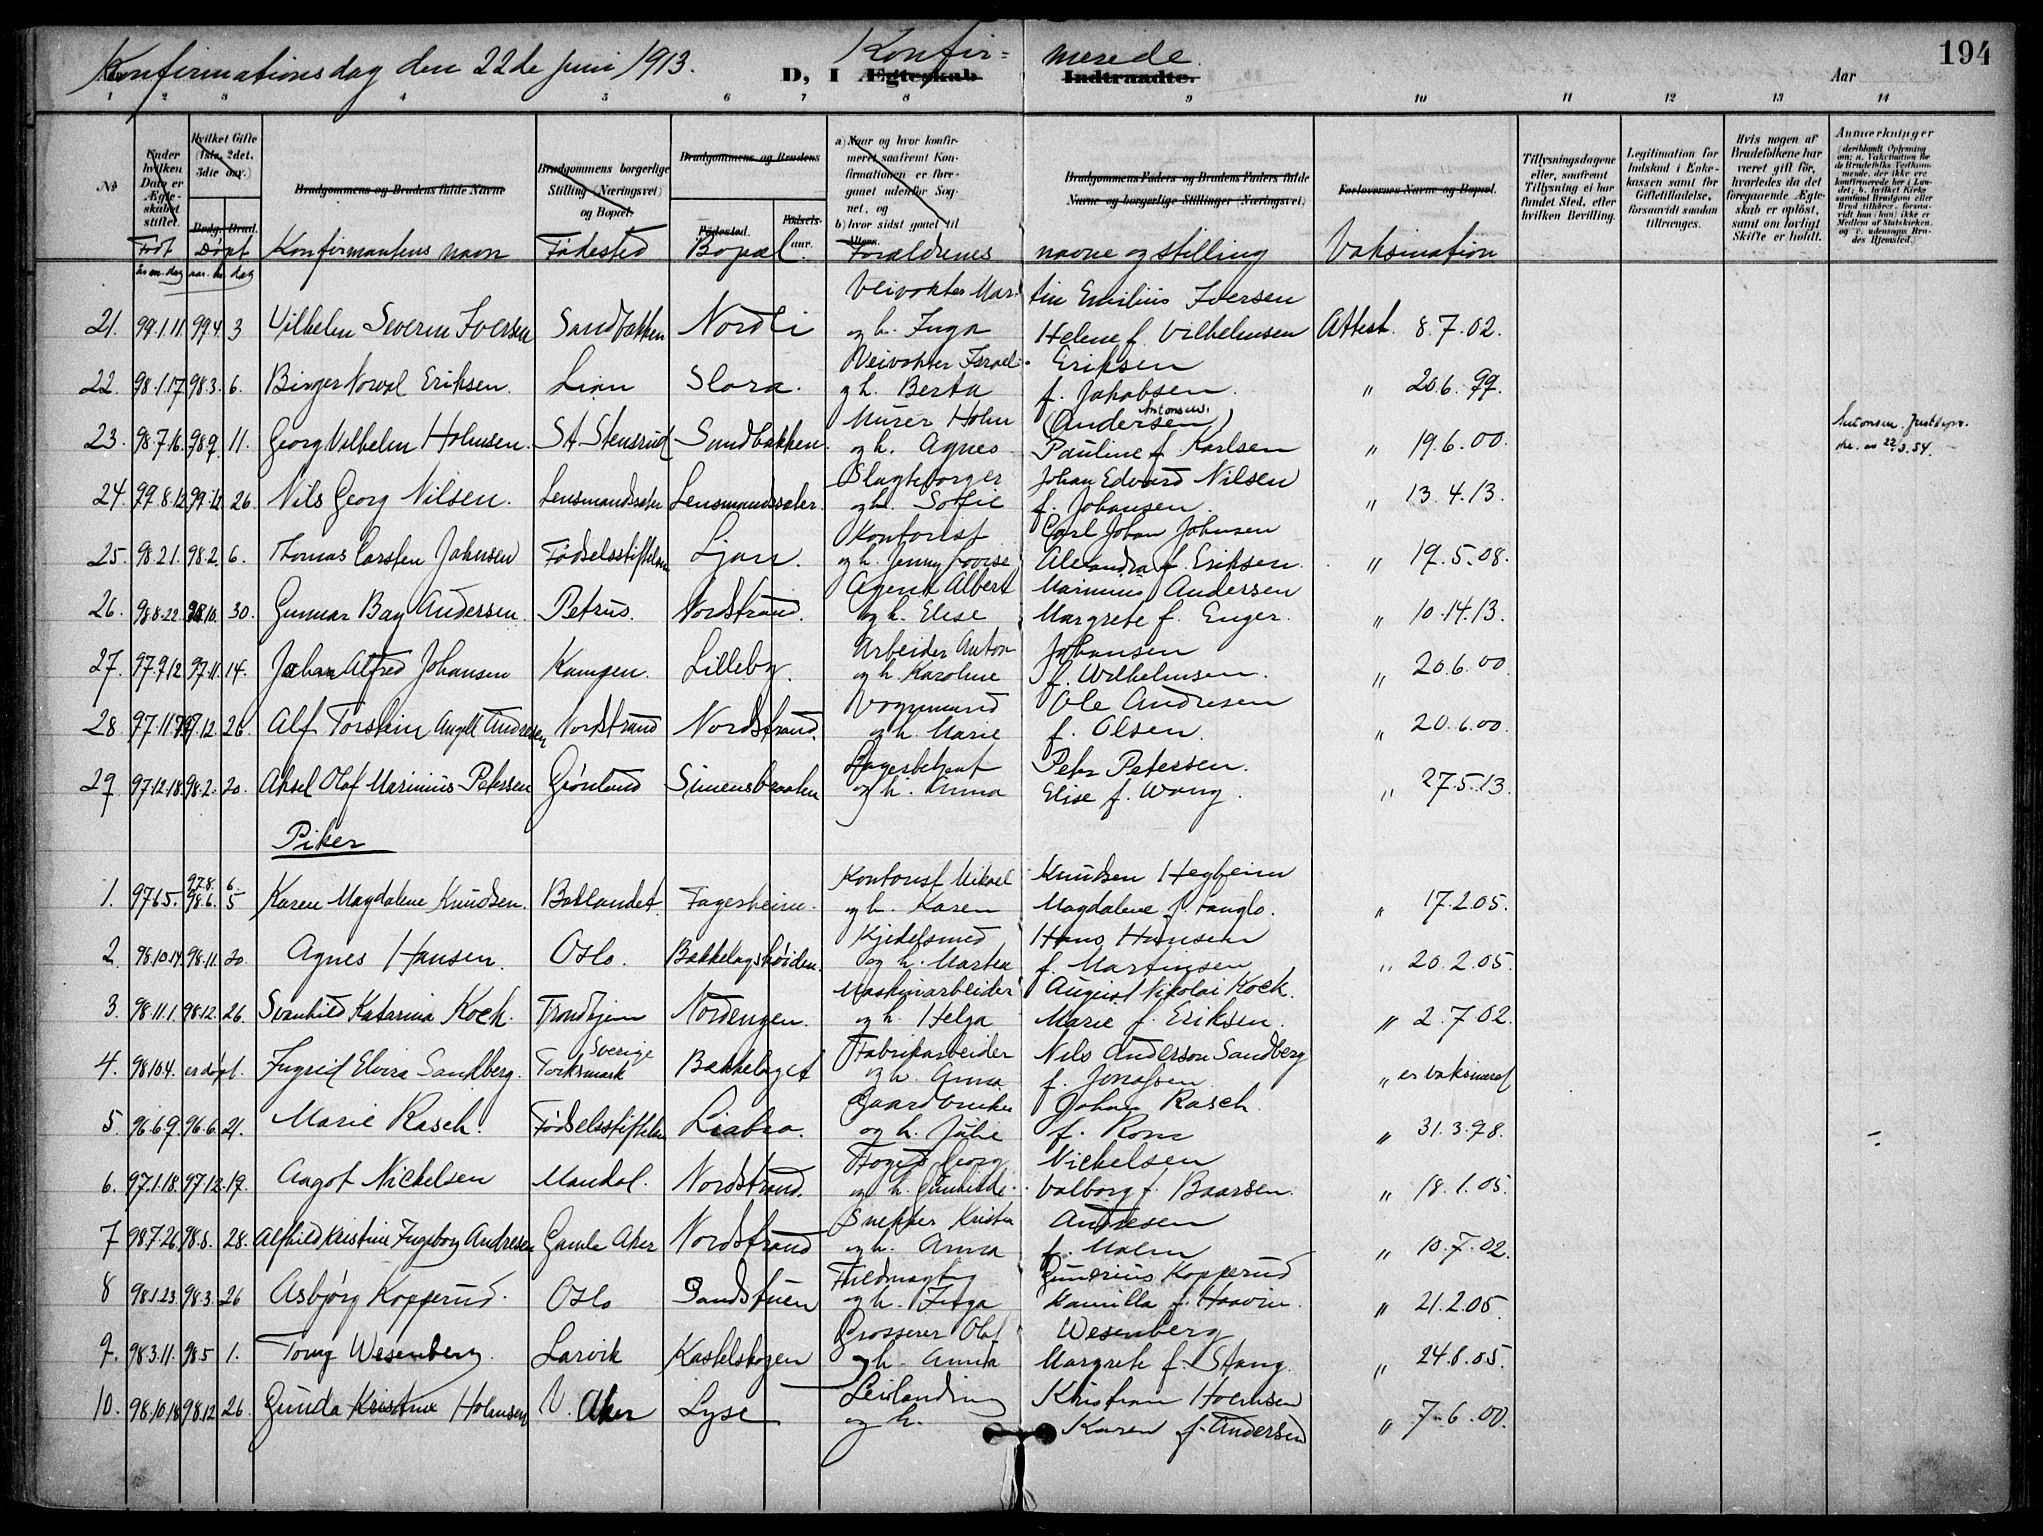 Konfirmationsdag den 22de Juni 1913.
Konfir= merede.
194
D, I Ægteskab Indtraadte.
Aar
1 2 3 4 5 6 7 8 9 10 11 12 13 14
No
Under hvilken Dato er Ægteskabet stiftet.
Hvilket Gifte (1ste, 2det, 3die osv.)
Brudg. Brud.
Brudgommens og Brudens fulde Navne
Brudgommens borgerlige Stilling (Næringsvei) og Bopæl.
Brudgommens og Brudens
Fødested.
Fødselsaar.
a) Naar og hvor konfirmeret saafremt Konfirmationen er foregaaet udenfor Sognet, og
b) hvor sidst gaaet til Alters.
Brudgommens Faders og Brudens Faders fulde Navne og borgerlige Stillinger (Næringsvei)
Forlovernes Navne og Bopæl.
Tillysningsdagene eller, saafremt Tillysning ei har fundet Sted, efter hvilken Bevilling.
Legitimation for Indskud i Enkekassen samt for Giftetilladelse, forsaavidt saadan tiltrænges.
Hvis nogen af Brudefolkene har været gift før, hvorledes da det foregaaende Ægteskab er opløst, samt om lovligt Skifte er holdt.
Anmerkninger
Født Døpt Konfirmantens navn Fødested Bopæl. Forældrenes navne og stilling Vaksination
aar m. dag
Veivokter Mar= tin Emilius Iversen
21. 99.1.11 99.4 3 Vilhelm Severin Iversen Sandbakken Nordli og h. Inga Helene f. Vilhelmsen Attest. 8.7.02.
Veivokter Israel Eriksen
22. 98.1.17 98.3. 6. Birger Norval Eriksen. Lian Slora. og h. Berta f. Jakobsen. " 20.6.99.
Murer Holm (Andersen) Antonsen.
23. 98.7.16. 98.9. 11. Georg Vilhelm Holmsen. St. Stensrud Sandbakken. og h. Agnes Pauline f. Karlsen " 19.6.00. Antonsen.
22.3.54.
Johan Edvard Nilsen
24. 99.8.12 99.12 26. Nils Georg Nilsen. Lensmandssæter Lensmandssæter. og h. Sofie f. Johansen. " 13.4.13.
Kontorist Carl Johan Johnsen
25. 98.2.1. 98.2. 6. Thomas Carsten Johnsen Fødselsstiftelsen Ljan. og h. Jenny Lovise Alexandra f. Eriksen. " 19.5.08.
Agent Albert Marinius Andersen
26. 98.8.22 98.10. 30. Gunnar Bay Andersen. Petrus. Nordstrand. og h. Elise Margrete f. Enger. " 10.14.13.
Arbeider Anton Johansen
27. 97.9.12 97.11. 14. Johan Alfred Johansen Kampen. Lilleby. og h. Karoline f. Wilhelmsen. " 20.6.00
Vognmand Ole Andresen
28 97.11. 97.12. 26. Alf Torstein Angell Andresen Nordstrand Nordstrand. og h. Marie f. Olsen. " 20.6.00.
Lagerbetjent Peter Petersen.
29 97.12.18. 98.2. 20. Aksel Olaf Marinius Petersen Grønland Simensbraaten og h. Anna Elise f. Wang. " 27.5.13.
Piker
Kontorist Mikael Knudsen Hegheim
97.8. 6
1. 97.6.5. 98.6. 5 Karen Magdalene Knudsen. Baklandet. Fagerheim. og h. Karen Magdalene f. Fanglo. " 17.2.05.
Kjedelsmed Hans Hansen
2. 98.10.14 98.11. 20. Agnes Hansen. Oslo. Bækkelagshøiden. og h. Martea f. Martinsen " 20.2.05.
Maskinarbeider August Nikolai Koch.
3. 98.11.1. 98.12. 26. Svanhild Katarina Koch. Trondhjem Nordengen. og h. Helga Marie f. Eriksen. " 2.7.02.
Sverige Fabrikarbeider Nils Anderson Sandberg
4. 98.10.4. er døpt. Ingrid Elvira Sandberg. Torksmark Bækkelaget og h. Anna f. Jonassen. " er vaksineret
Gaardbruker Johan Rasch.
5. 96.6.9. 96.6. 21. Marie Rasch. Fødselsstiftelsen Liabro. og h. Julie f. " 31.3.98.
Foged Georg Nickelsen
6. 97.1.18. 97.12. 19. Aagot Nickelsen Mandal. Nordstrand. og h. Gunhilde Valborg f. Baarsen. " 18.1.05.
Snekker Kristen Andresen
7 98.7.26. 98.8. 28. Alfhild Kristine Ingeborg Andresen Gamle Aker Nordstrand og h. Anna f. Malm " 10.7.02.
Fuldmægtig Gunerius Kopperud
8 98.1.23. 98.3. 26 Asbjørg Kopperud. Oslo Sandstuen og h. Inga Kamilla f. Haavin. " 21.2.05.
Grosserer Olaf Wesenberg
9. 98.3.11. 98.5 1. Tony Wesenberg. Larvik Kastelskogen og h. Anna Margrete f. Stang. " 24.8.05.
Leilending Kristian Holmsen
10. 98.10.18 98.12 26. Gunda Kristine Holmsen V. Aker Lyse og h. Karen f. Andersen " 7.6.00.